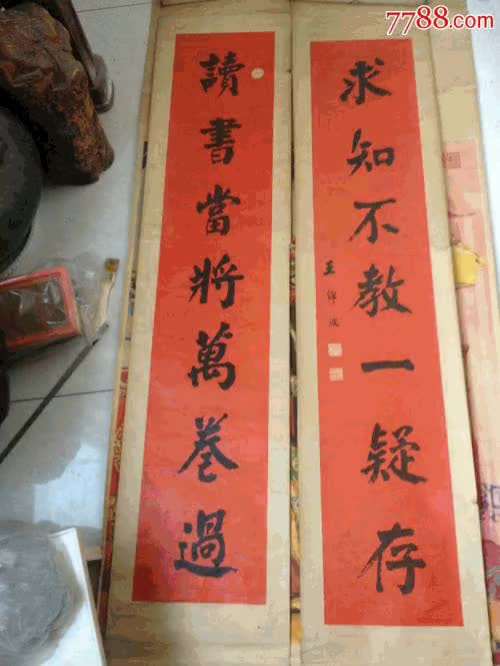 7788.com
讀書當將萬卷過
求知不教一疑存
王